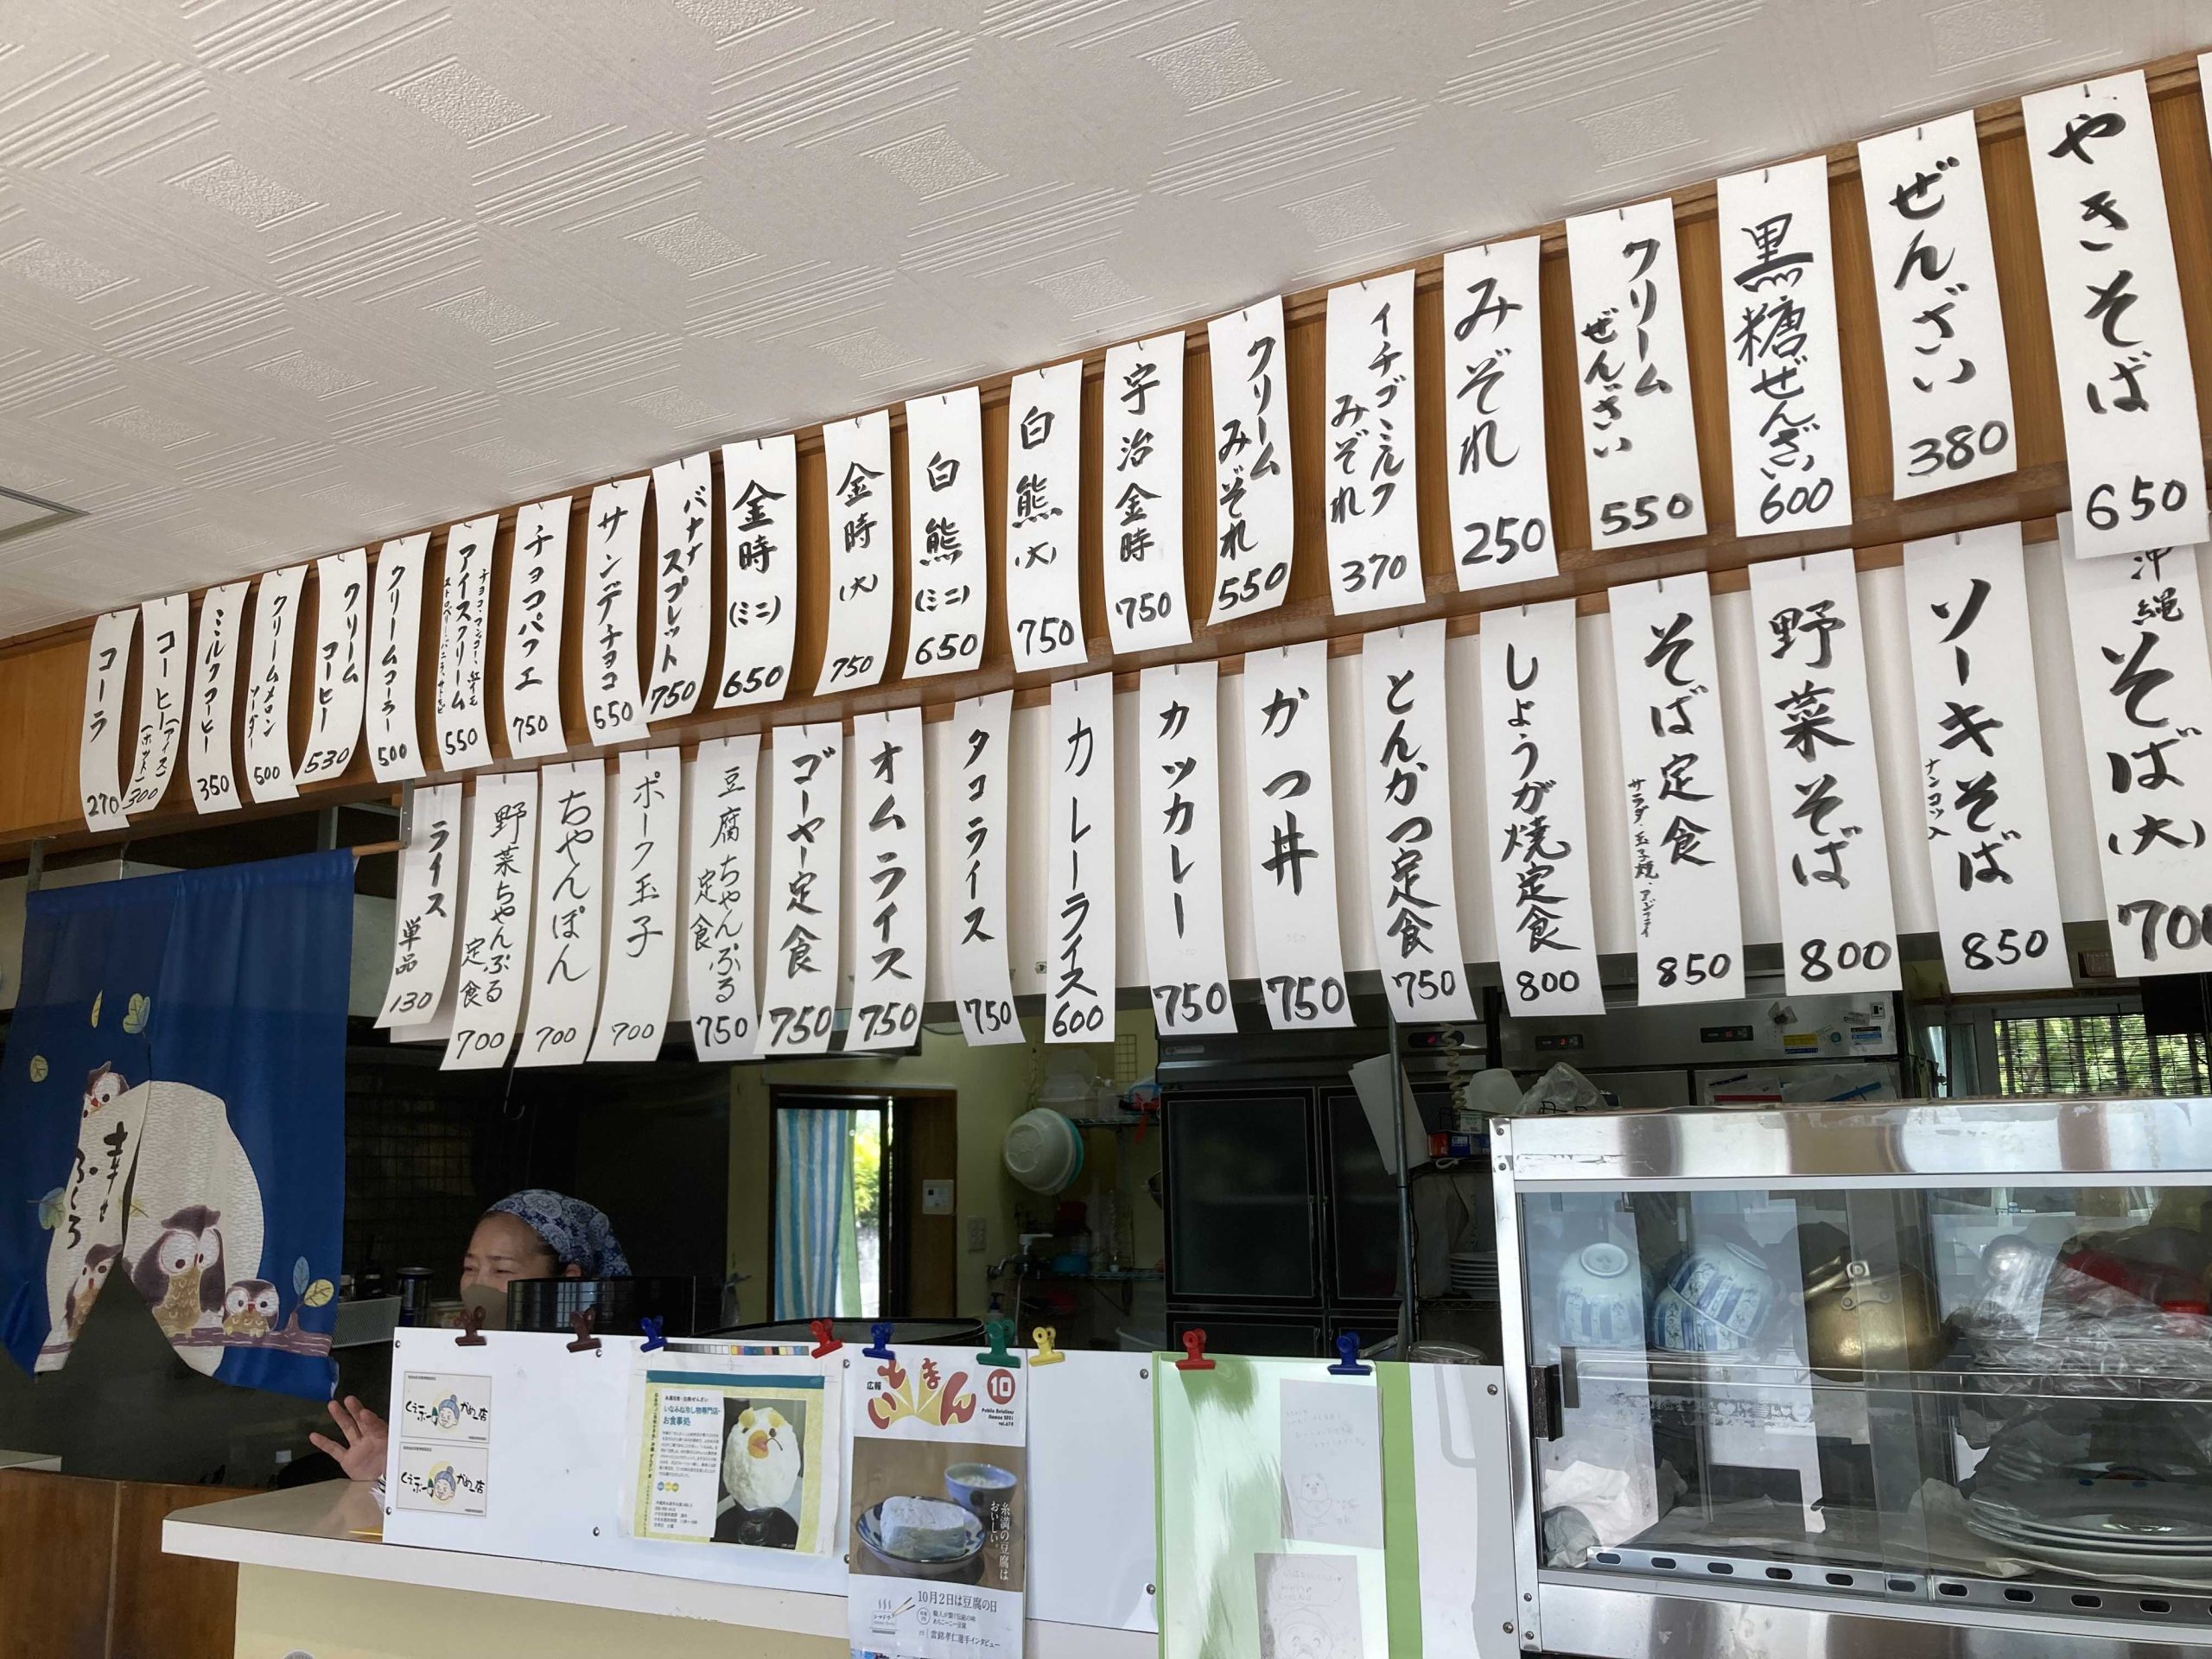 やきそば
650
ぜんざい
380
黒糖ぜんざい
600
クリーム
ぜんざい
550
みぞれ
250
イチゴミルク
みぞれ
370
クリーム
みぞれ
550
宇治金時
750
白熊
(大)
750
白熊
(ミニ)
650
金時
(大)
750
金時
(ミニ)
650
バナナ
スプレット
750
サンデチョコ
550
チョコパフエ
750
チョコ、マンゴー、紅イモ
アイスクリーム
550
クリームコーラー
500
クリーム
コーヒー
530
クリームメロン
ソーダー
500
ミルクコーヒー
350
コーヒー(アイス)
(ホット)
300
コーラ
270
沖縄
そば
(大)
700
ソーキそば
ナンコツ入
850
野菜そば
800
そば定食
サラダ・玉子焼・
850
しょうが焼定食
800
とんかつ定食
750
かつ丼
750
カッカレー
750
カレーライス
600
タコライス
750
オムライス
750
ゴーヤー定食
750
豆腐ちゃんぷる
定食
750
ポーク玉子
700
ちゃんぽん
700
野菜ちゃんぷる
定食
700
ライス
単品
130
幸せ
ふくろ
かめー店
かめー店
いなみね冷し物専門店・
お食事処
広報
いとまん
10
糸満の豆腐は
おいしい。
10月2日は豆腐の日